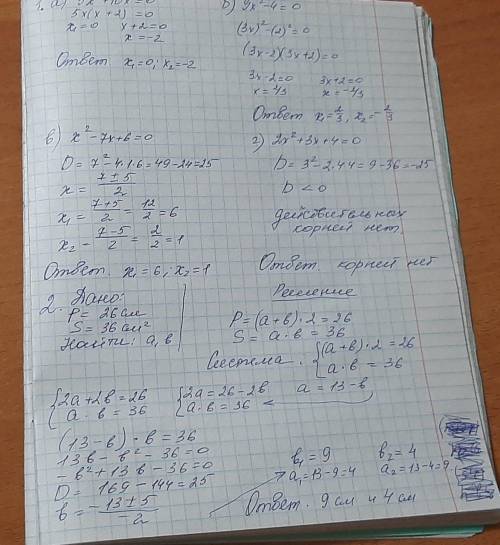 1. а) 5x²+10x=0
5x(x+2)=0
x₁=0 x+2=0
x=-2
Ответ x₁=0; x₂=-2
б) 9x²-4=0
(3x)²-(2)²=0
(3x-2)(3x+2)=0
3x-2=0 3x+2=0
x=2/3 x=-2/3
Ответ x₁=2/3, x₂=-2/3
в) x²-7x+6=0
D=7²-4·1·6=49-24=25
x=(7±5)/2
x₁=(7+5)/2=12/2=6
x₂-(7-5)/2=2/2=1
Ответ. x₁=6; x₂=1
г) 2x²+3x+4=0
D=3²-2·4·4=9-36=-25
D<0
действительных
корней нет.
Ответ. корней нет
2. Дано:
P=26см
S=36см²
Найти: a, в
Решение
P=(a+в)·2=26
S=a·в=36
Система. {(a+в)·2=26
a·в=36
{2a+2в=26
a·в=36
{2a=26-2в
a·в=36
a=13-в
(13-в)·в=36
13в-в²-36=0
-в²+13в-36=0
D=169-144=25
в=(-13±5)/-2
в₁=9 в₂=4
a₁=13-9=4 a₂=13-4=9.
Ответ. 9см и 4см